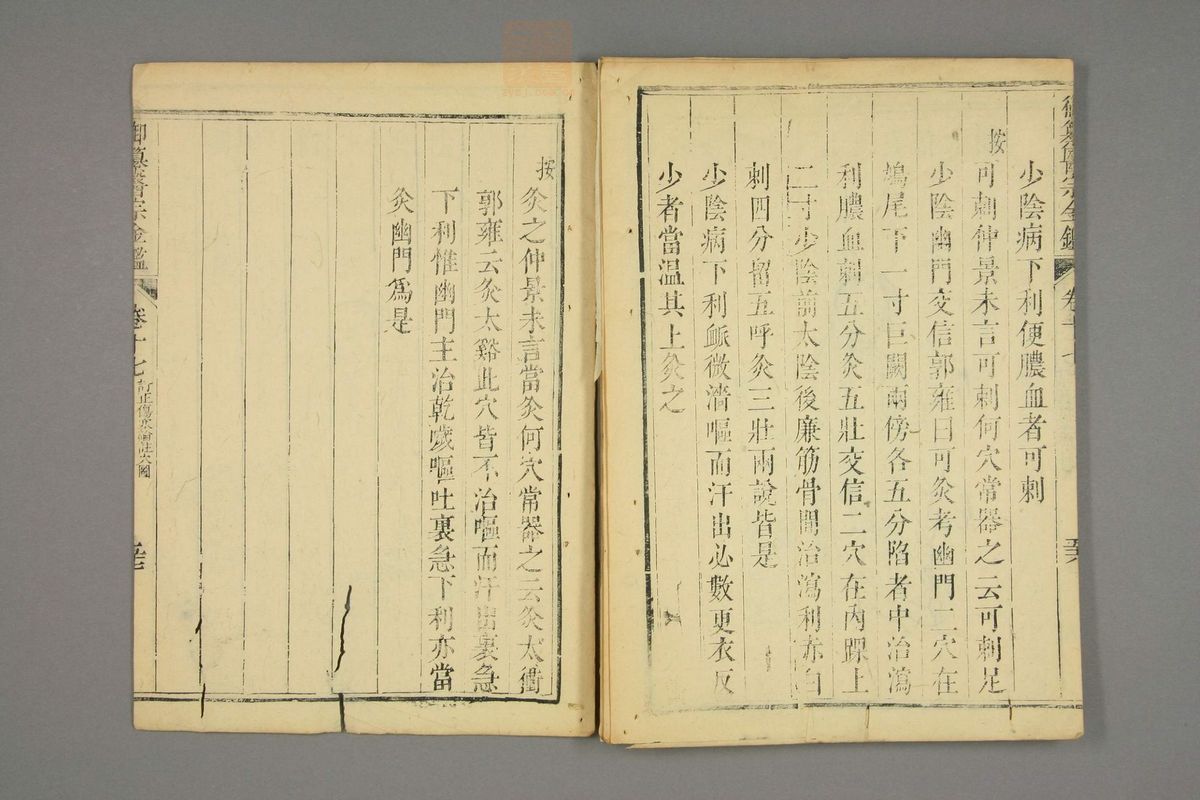 少陰病下利便膿血者可刺
按
可刺仲景未言可刺何穴常器之云可刺足
少陰幽門交信郭雍曰可灸考幽門二穴在
鳩尾下一寸巨闕兩傍各五分陷者中治瀉
利膿血刺五分灸五壯交信二穴在內踝上
二寸少陰前太陰後廉筋骨間治瀉利赤白
刺四分留五呼灸三壯兩說皆是
少陰病下利脈微濇嘔而汗出必數更衣反
少者當溫其上灸之
按
灸之仲景未言當灸何穴常器之云灸太衝
郭雍云灸太谿此穴皆不治嘔而汗出裏急
下利惟幽門主治乾噦嘔吐裏急下利亦當
灸幽門爲是
御纂醫宗金鑑
卷十七
訂正傷寒論註